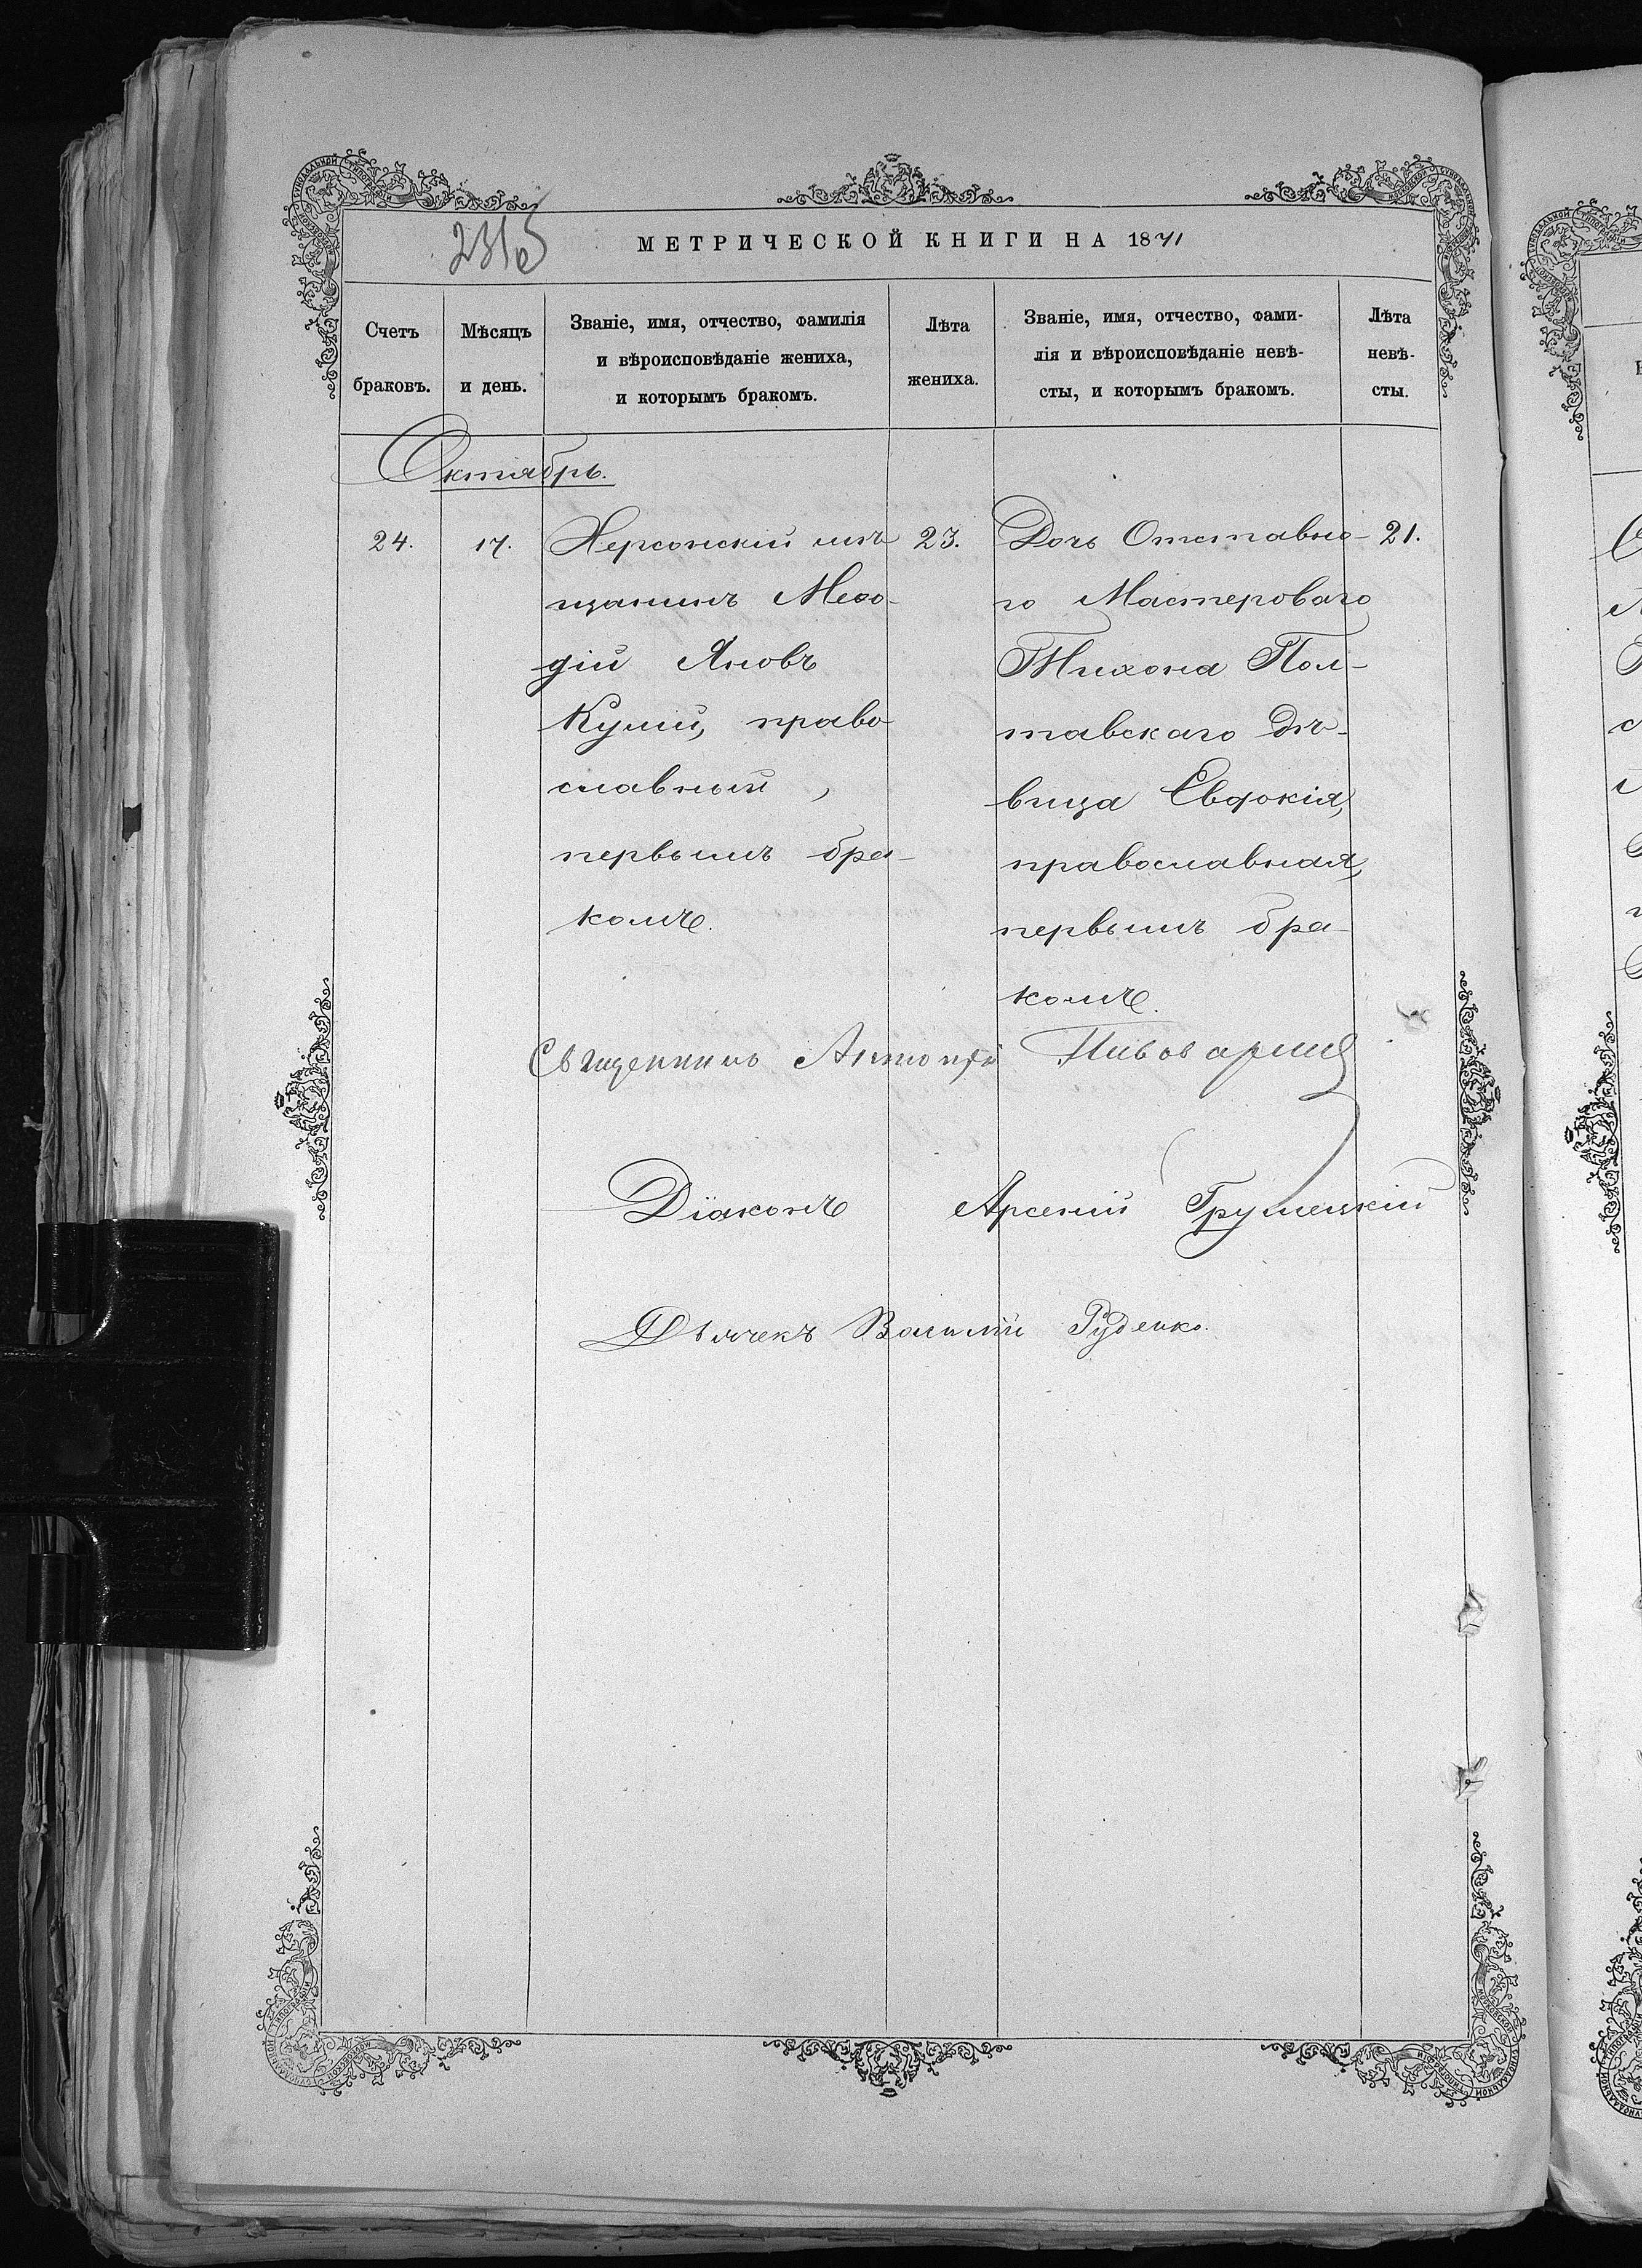 МЕТРИЧЕСКОЙ КНИГИ НА 1871
Счетъ браковъ.
Мѣсяцъ и день.
Званіе, имя, отчество, фамилія
и вѣроисповѣданіе жениха,
и которымъ бракомъ.
Лѣта жениха.
Званіе, имя, отчество, фами-
лія и вѣроисповѣданіе невѣ-
сты, и которымъ бракомъ.
Лѣта невѣ-
сты.
Октябрь.
24. 17.
Херсонскій мѣ
щанинъ Меѳо-
дій Яковъ
Кулиш, право
славный,
первымъ бра-
комъ.
23.
Дочь Отставно-
го Мастероваго
Тихона Пол-
тавскаго Дѣ-
вица Евдокія,
православная,
первымъ бра-
комъ.
21.
Священникъ Антоній Пивоварни
Діаконъ Арсеній Грушецкій
Дьячекъ Василій Руденко.